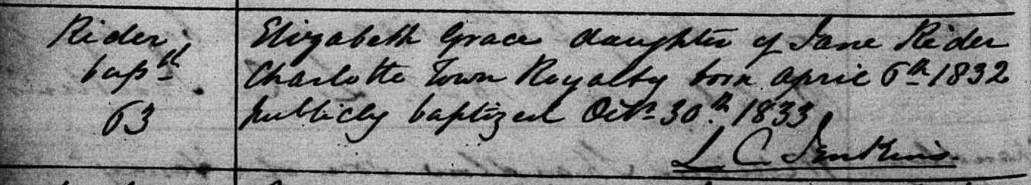 Rider Elizabeth Grace daughter of Jane Rider
bapth Charlotte Town Royalty born april 6th 1832
63 publicly baptized Octr 30th 1833
L C Jenkins.